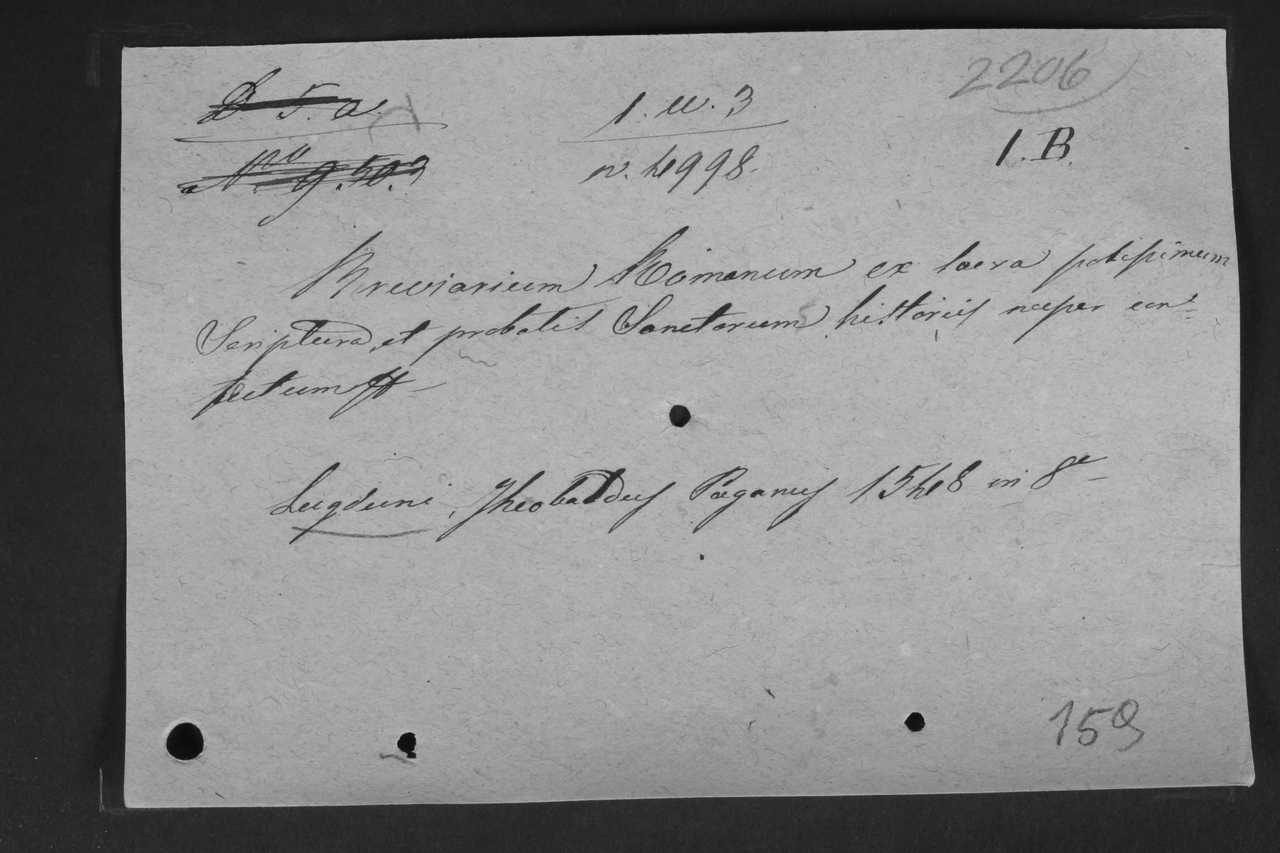 D 5. a.
1. u. 3
2206
Nro 9.50.3
n. 4998.
1. B.
Breviarium Romanum ex sacra potissimum
Scriptura, et probatis Sanctorum historiis nuper con=
fectum
Lugduni, Theobaldus Paganus 1548 in 8e
159